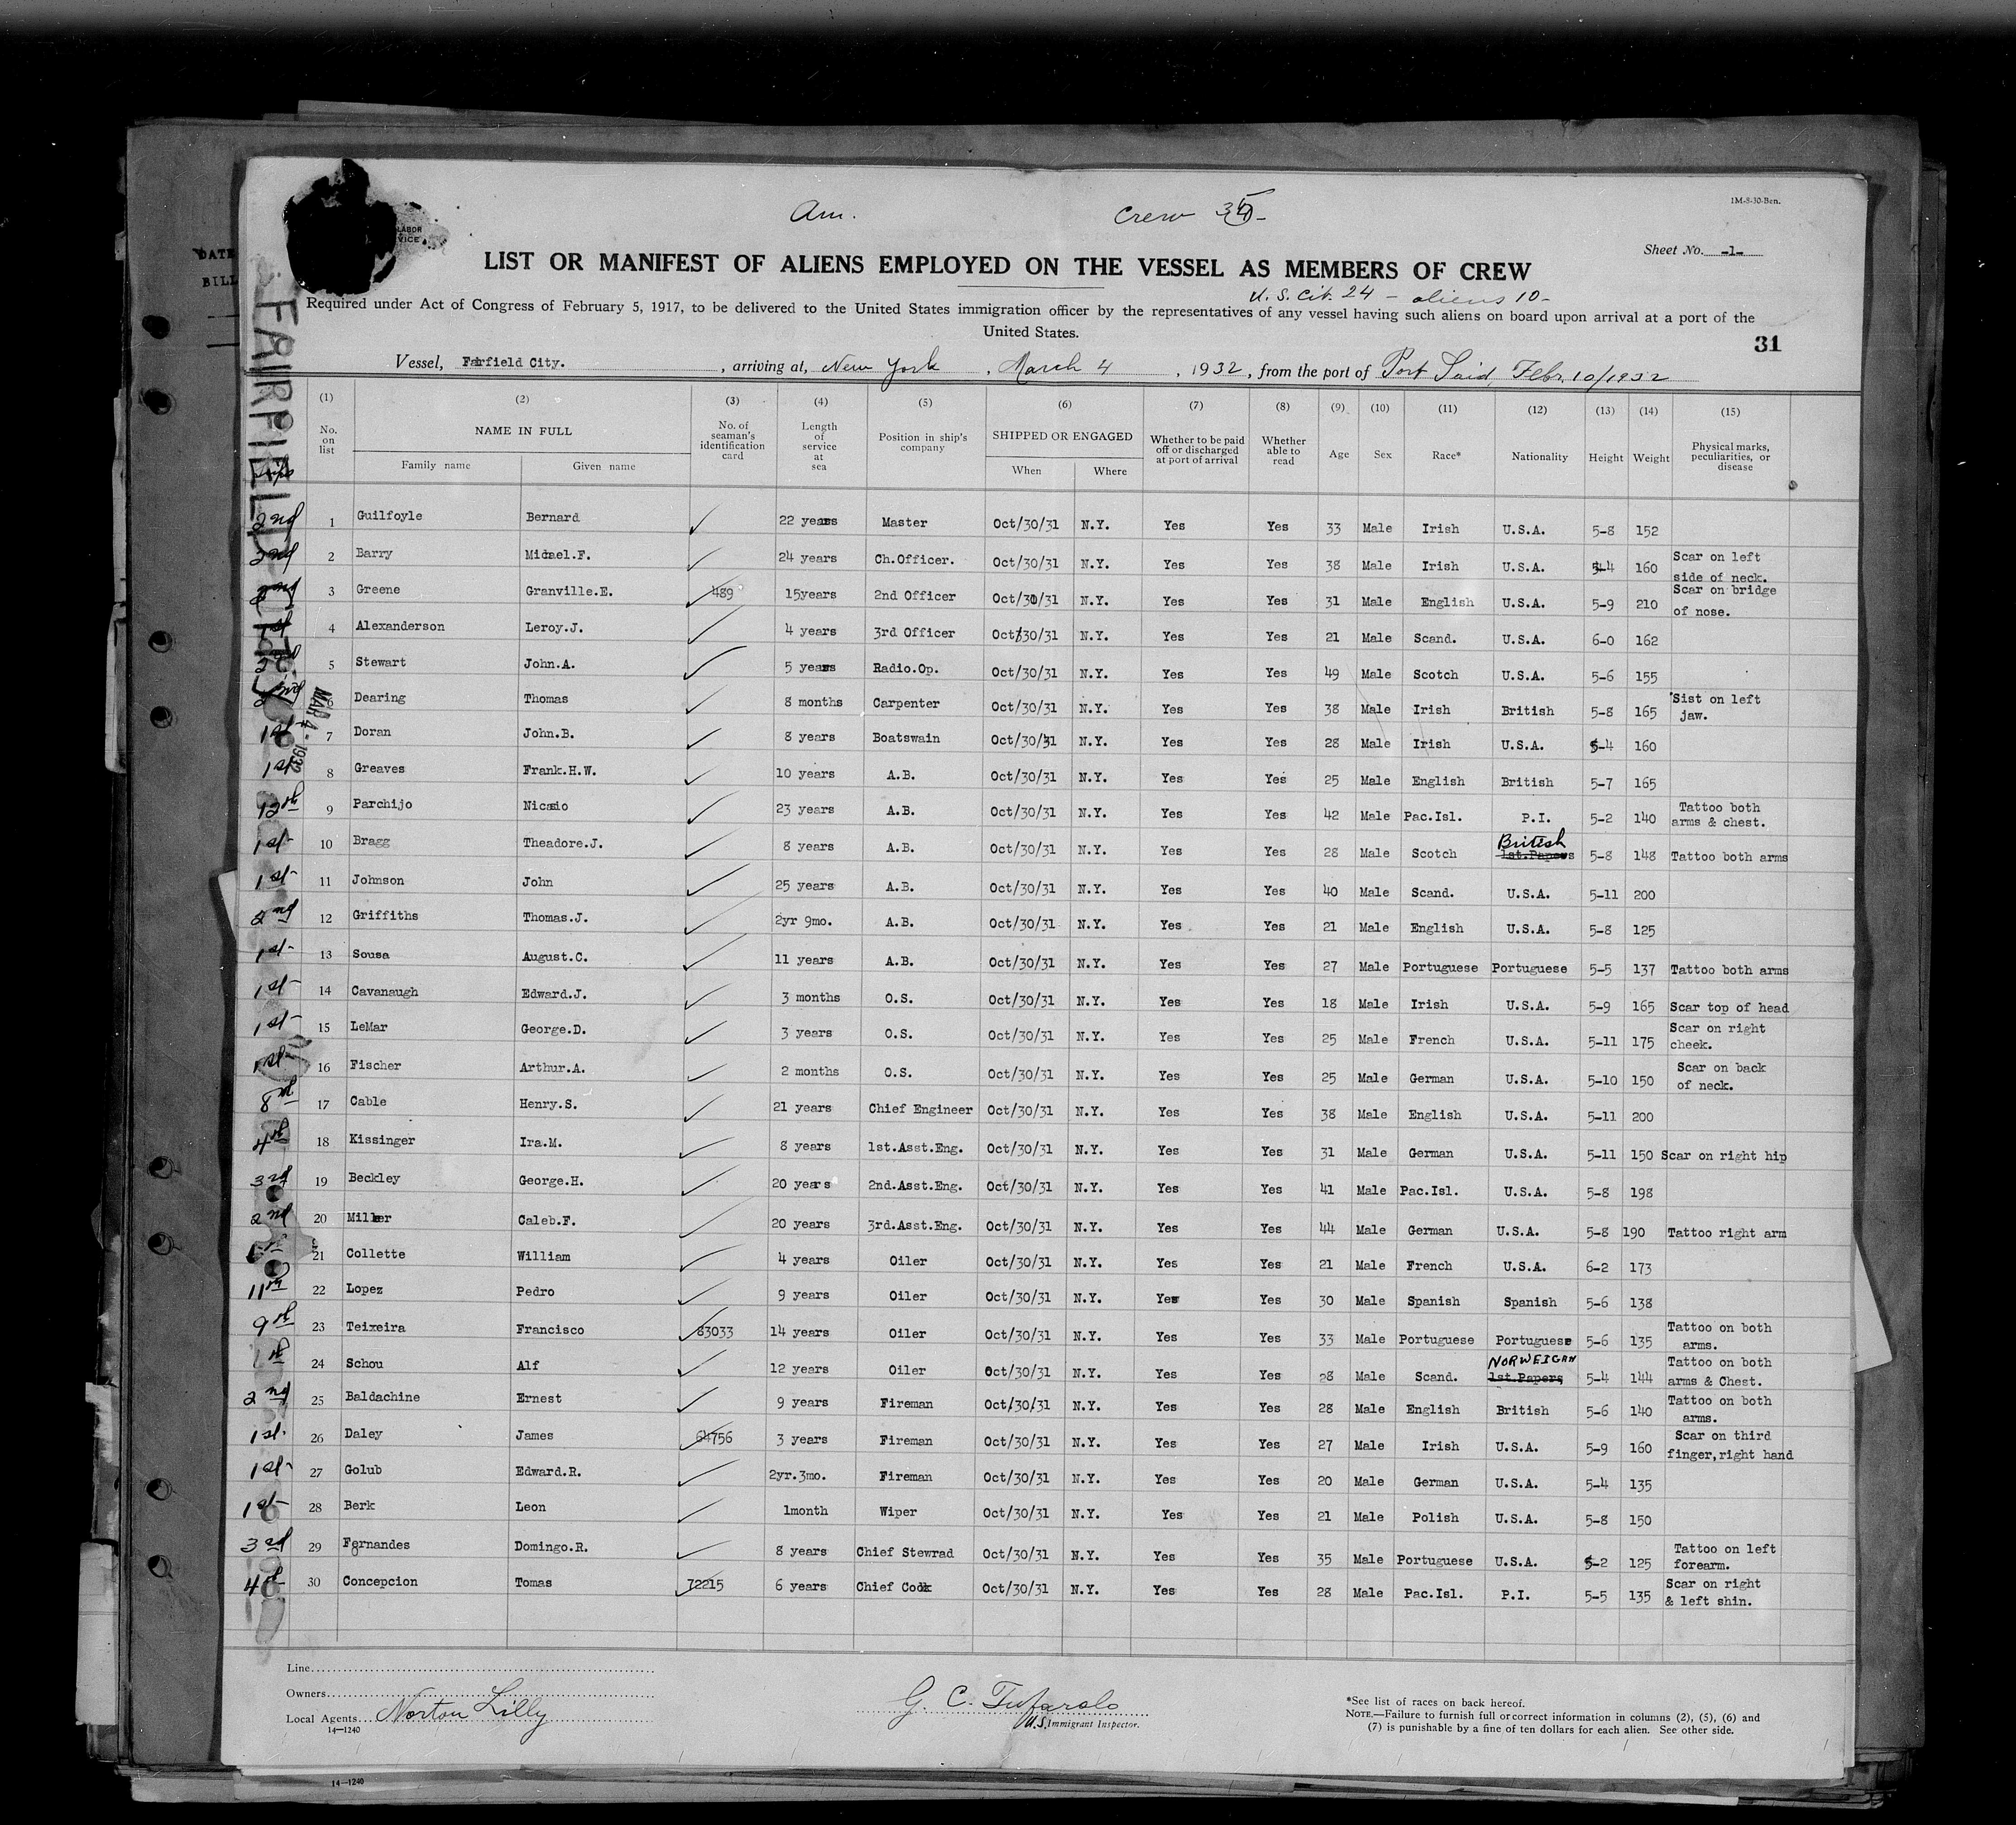 Am. Crew
1M-8-30-Ben.
LABOR
VICE
DATE
BILL
Sheet No. -1-
LIST OR MANIFEST OF ALIENS EMPLOYED ON THE VESSEL AS MEMBERS OF CREW
U.S. Cit. 24 - aliens 10-
Required under Act of Congress of February 5, 1917, to be delivered to the United States immigration officer by the representatives of any vessel having such aliens on board upon arrival at a port of the
United States.
31
Vessel, Fairfield City. , arriving at, New York , March 4 , 1932, from the port of Port Said, Febr. 10/1932
FAIRFIELD CITY
MAR 4 - 1932
(1) (2) (3) (4) (5) (6) (7) (8) (9) (10) (11) (12) (13) (14) (15)
No. on list NAME IN FULL Family name Given name No. of seaman's identification card Length of service at sea Position in ship's company SHIPPED OR ENGAGED When Where Whether to be paid off or discharged at port of arrival Whether able to read Age Sex Race* Nationality Height Weight Physical marks, peculiarities, or disease
2nd 1 Guilfoyle Bernard 22 years Master Oct/30/31 N.Y. Yes Yes 33 Male Irish U.S.A. 5-8 152
2nd 2 Barry Michael.F. 24 years Ch.Officer. Oct/30/31 N.Y. Yes Yes 38 Male Irish U.S.A. 5-4 160 Scar on left side of neck.
2nd 3 Greene Granville.E. 489 15years 2nd Officer Oct/30/31 N.Y. Yes Yes 31 Male English U.S.A. 5-9 210 Scar on bridge of nose.
1st 4 Alexanderson Leroy.J. 4 years 3rd Officer Oct/30/31 N.Y. Yes Yes 21 Male Scand. U.S.A. 6-0 162
5 Stewart John.A. 5 years Radio.Op. Oct/30/31 N.Y. Yes Yes 49 Male Scotch U.S.A. 5-6 155
2nd 6 Dearing Thomas 8 months Carpenter Oct/30/31 N.Y. Yes Yes 38 Male Irish British 5-8 165 Sist on left jaw.
1st 7 Doran John.B. 8 years Boatswain Oct/30/31 N.Y. Yes Yes 28 Male Irish U.S.A. 5-4 160
1st 8 Greaves Frank.H.W. 10 years A.B. Oct/30/31 N.Y. Yes Yes 25 Male English British 5-7 165
12th 9 Parchijo Nicasio 23 years A.B. Oct/30/31 N.Y. Yes Yes 42 Male Pac.Isl. P.I. 5-2 140 Tattoo both arms & chest.
1st 10 Bragg Theadore.J. 8 years A.B. Oct/30/31 N.Y. Yes Yes 28 Male Scotch British 1st.Papers 5-8 148 Tattoo both arms
1st 11 Johnson John 25 years A.B. Oct/30/31 N.Y. Yes Yes 40 Male Scand. U.S.A. 5-11 200
2nd 12 Griffiths Thomas.J. 2yr 9mo. A.B. Oct/30/31 N.Y. Yes Yes 21 Male English U.S.A. 5-8 125
1st 13 Sousa August.C. 11 years A.B. Oct/30/31 N.Y. Yes Yes 27 Male Portuguese Portuguese 5-5 137 Tattoo both arms
1st 14 Cavanaugh Edward.J. 3 months O.S. Oct/30/31 N.Y. Yes Yes 18 Male Irish U.S.A. 5-9 165 Scar top of head
1st 15 LeMar George.D. 3 years O.S. Oct/30/31 N.Y. Yes Yes 25 Male French U.S.A. 5-11 175 Scar on right cheek.
1st 16 Fischer Arthur.A. 2 months O.S. Oct/30/31 N.Y. Yes Yes 25 Male German U.S.A. 5-10 150 Scar on back of neck.
8th 17 Cable Henry.S. 21 years Chief Engineer Oct/30/31 N.Y. Yes Yes 38 Male English U.S.A. 5-11 200
4th 18 Kissinger Ira.M. 8 years 1st.Asst.Eng. Oct/30/31 N.Y. Yes Yes 31 Male German U.S.A. 5-11 150 Scar on right hip
3rd 19 Beckley George.H. 20 years 2nd.Asst.Eng. Oct/30/31 N.Y. Yes Yes 41 Male Pac.Isl. U.S.A. 5-8 198
2nd 20 Miller Caleb.F. 20 years 3rd.Asst.Eng. Oct/30/31 N.Y. Yes Yes 44 Male German U.S.A. 5-8 190 Tattoo right arm
21 Collette William 4 years Oiler Oct/30/31 N.Y. Yes Yes 21 Male French U.S.A. 6-2 173
11th 22 Lopez Pedro 9 years Oiler Oct/30/31 N.Y. Yes Yes 30 Male Spanish Spanish 5-6 138
9th 23 Teixeira Francisco 83033 14 years Oiler Oct/30/31 N.Y. Yes Yes 33 Male Portuguese Portuguese 5-6 135 Tattoo on both arms.
24 Schou Alf 12 years Oiler Oct/30/31 N.Y. Yes Yes 28 Male Scand. NORWEIGAN 1st.Papers 5-4 144 Tattoo on both arms & Chest.
2nd 25 Baldachine Ernest 9 years Fireman Oct/30/31 N.Y. Yes Yes 28 Male English British 5-6 140 Tattoo on both arms.
1st. 26 Daley James 64756 3 years Fireman Oct/30/31 N.Y. Yes Yes 27 Male Irish U.S.A. 5-9 160 Scar on third finger,right hand
1st 27 Golub Edward.R. 2yr.3mo. Fireman Oct/30/31 N.Y. Yes Yes 20 Male German U.S.A. 5-4 135
1st 28 Berk Leon 1month Wiper Oct/30/31 N.Y. Yes Yes 21 Male Polish U.S.A. 5-8 150
3rd 29 Fernandes Domingo.R. 8 years Chief Stewrad Oct/30/31 N.Y. Yes Yes 35 Male Portuguese U.S.A. 5-2 125 Tattoo on left forearm.
4th 30 Concepcion Tomas 72215 6 years Chief Cook Oct/30/31 N.Y. Yes Yes 28 Male Pac.Isl. P.I. 5-5 135 Scar on right & left shin.
Line
Owners
Local Agents Norton Lilly
14-1240
G. C. Tufarolo
U.S. Immigrant Inspector.
*See list of races on back hereof.
NOTE.—Failure to furnish full or correct information in columns (2), (5), (6) and
(7) is punishable by a fine of ten dollars for each alien. See other side.
14-1240